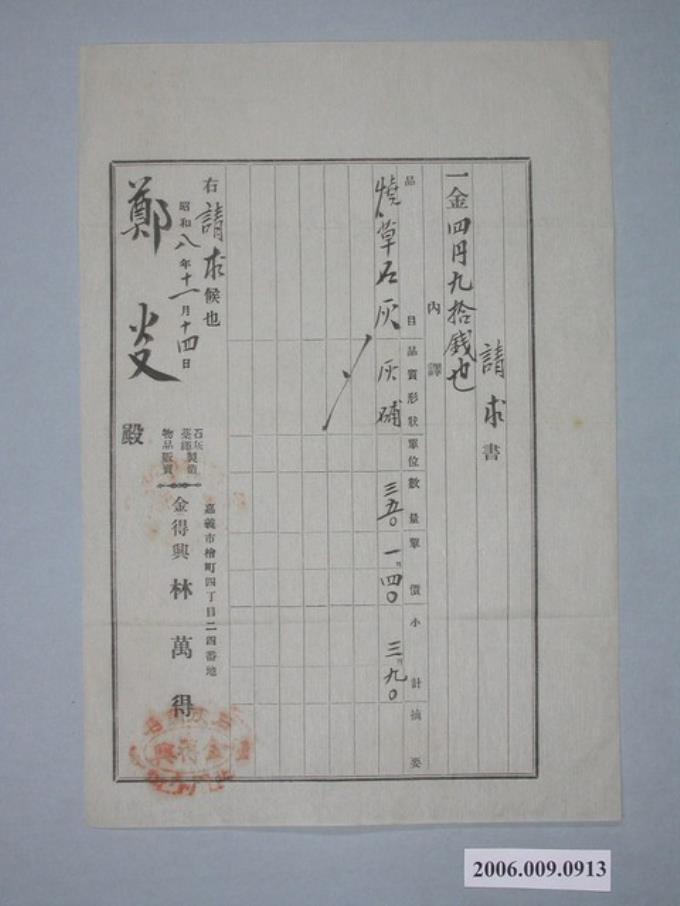 請求書
一金四円九拾錢也
內譯
品目 品質形狀 單位 數量 單價 小計 摘要
燒草石灰 灰礵 三五〇 一円四〇 三円九〇
右請求候也
昭和八年十一月十四日
鄭
殿
嘉義市檜町四丁目二四番地
石灰
製造
物品販賣
金得興 林萬得
金得興
2006.009.0913